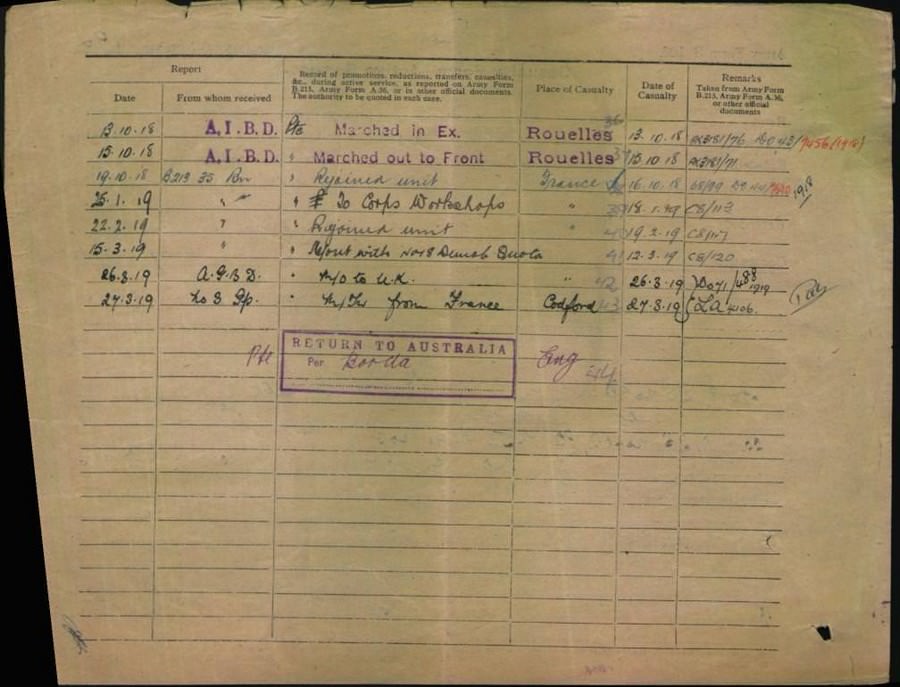 Report
Record of promotions, reductions, transfers, casualties, &c., during active service, as reported on Army Form B.213, Army Form A.36, or in other official documents. The authority to be quoted in each case.
Place of Casualty
Date of Casualty
Remarks
Taken from Army Form B.213, Army Form A.36, or other official documents
Date
From whom received
13.10.18 A.I.B.D. Pte Marched in Ex. Rouelles 36 13.10.18
15.10.18 A.I.B.D. " Marched out to Front Rouelles 37 15.10.18
19.10.18 B213 35 Bn " Rejoined unit France 16.10.18
25.1.19 " " To Corps Workshops " 39 18.1.19 C8/113
22.2.19 " " Rejoined unit " 19.2.19 C8/117
15.3.19 " " M/out with No 18 Demob Quota 41 12.3.19 C8/120
26.3.19 A.G.B.D. " M/O to U.K. " 42 26.3.19 Do 71/488 1919
27.3.19 No 3 Gp. " M/In from France Codford 43 27.3.19 LA 4106.
RETURN TO AUSTRALIA
Pte Per Borda Eng 44